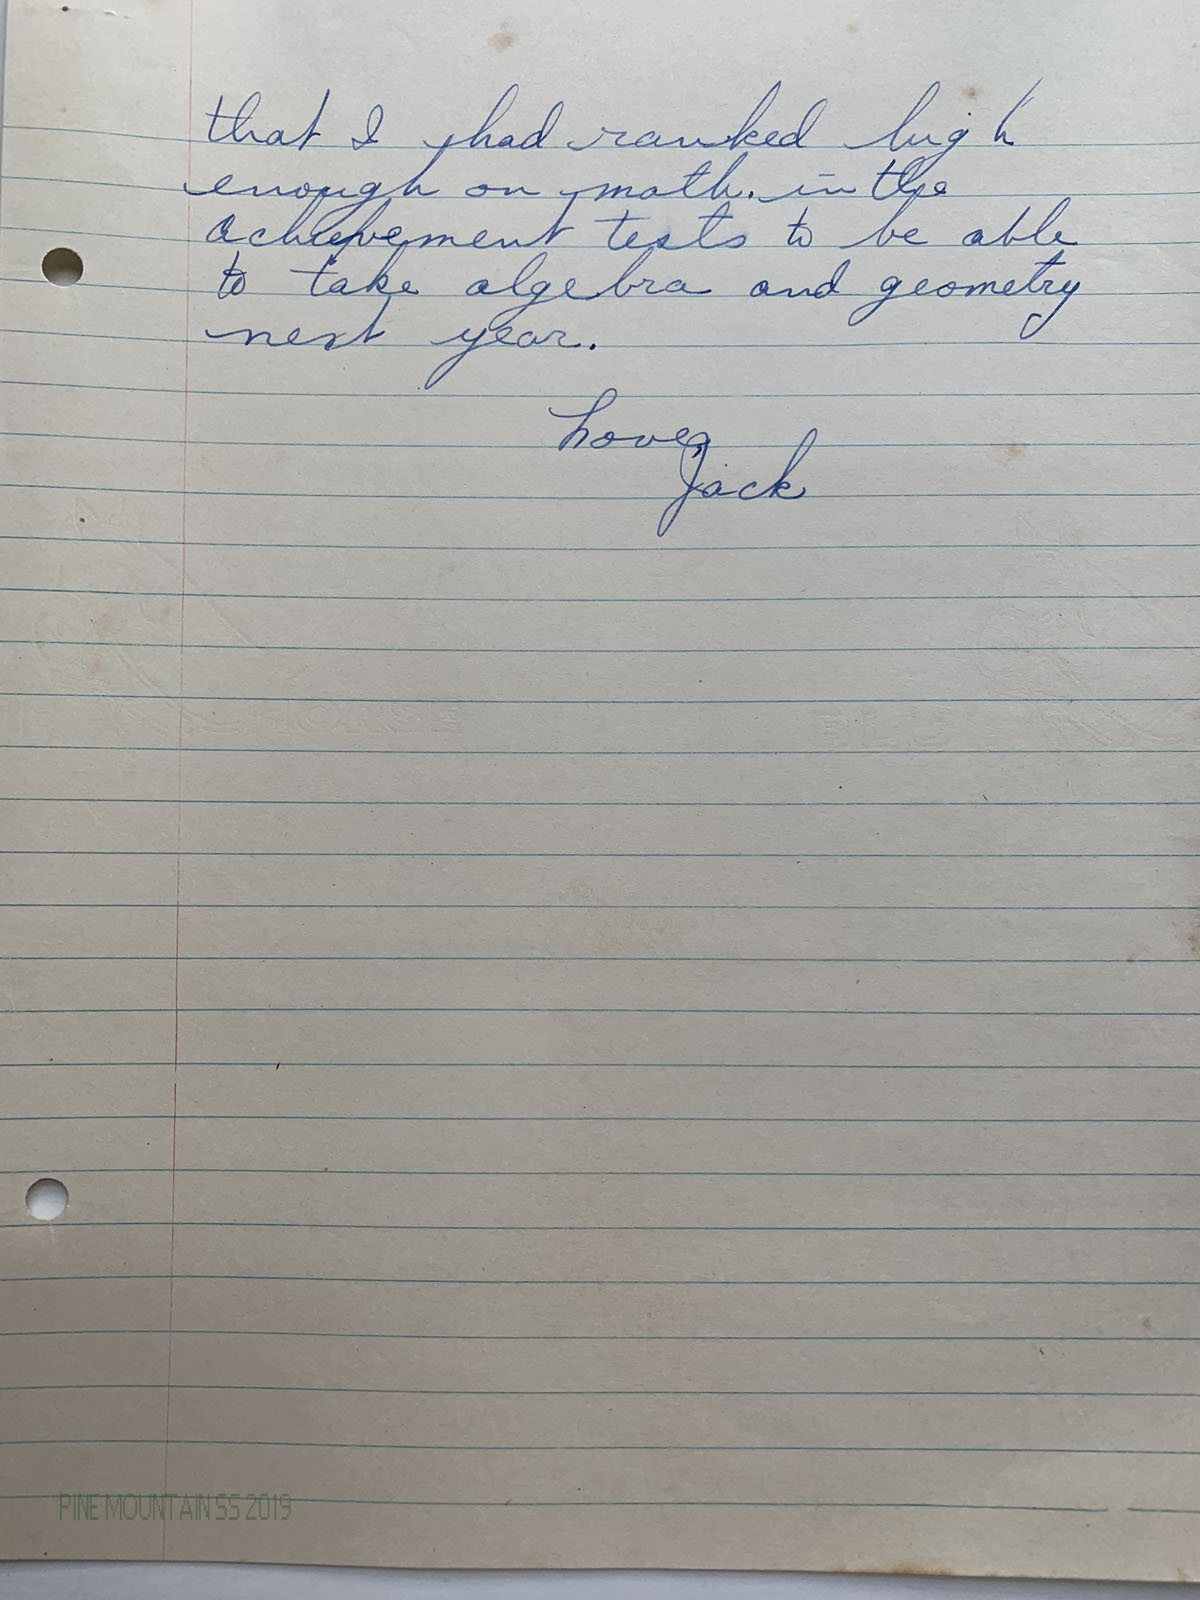 that I had ranked high
enough on math. in the
achievement tests to be able
to take algebra and geometry
next year.
Love,
Jack
PINE MOUNTAIN SS 2019